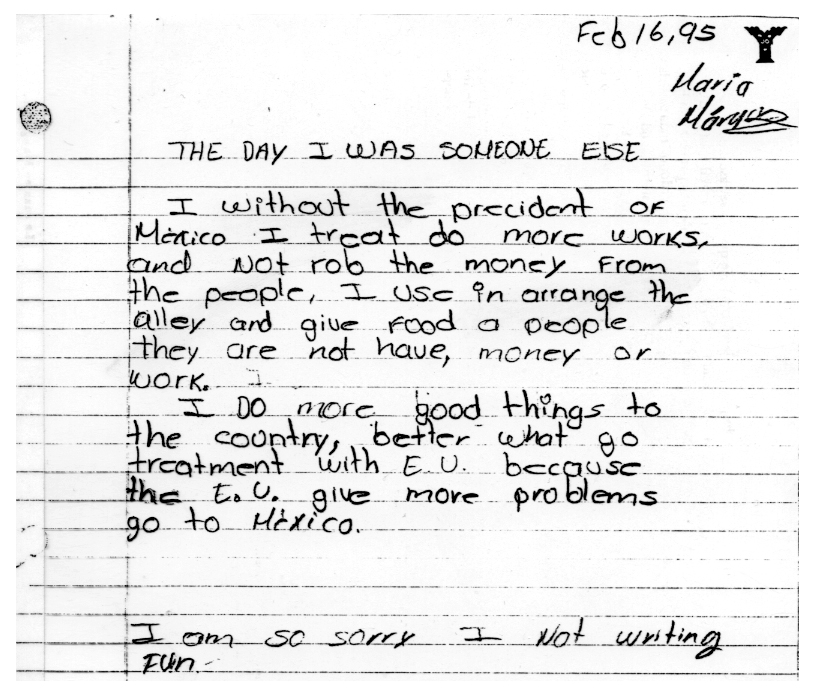 Feb 16, 95
Maria
THE DAY I WAS SOMEONE ELSE
I without the precident OF
México I treat do more works,
and NOT rob the money From
the people, I use in arrange the
alley and give Food a people
they are not have, money or
work.
I DO more good things to
the country, better what go
treatment with E.U. because
the E.U. give more problems
go to México.
I am so sorry I Not writing
FUn.